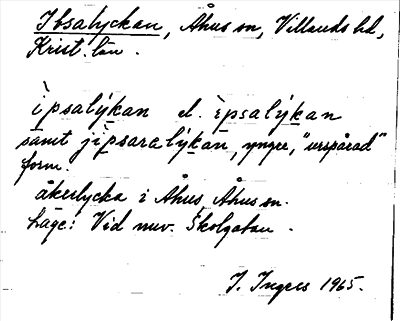 Ibsalyckan, Åhus sn, Villands hd,
Krist. län.
ìpsalýkan el. ìpsalýkan
samt jìpsaralýkan, yngre, "urspårad"
form.
åkerlycka i Åhus, Åhus sn.
Läge: Vid nuv. Skolgatan.
J. Ingers 1965.